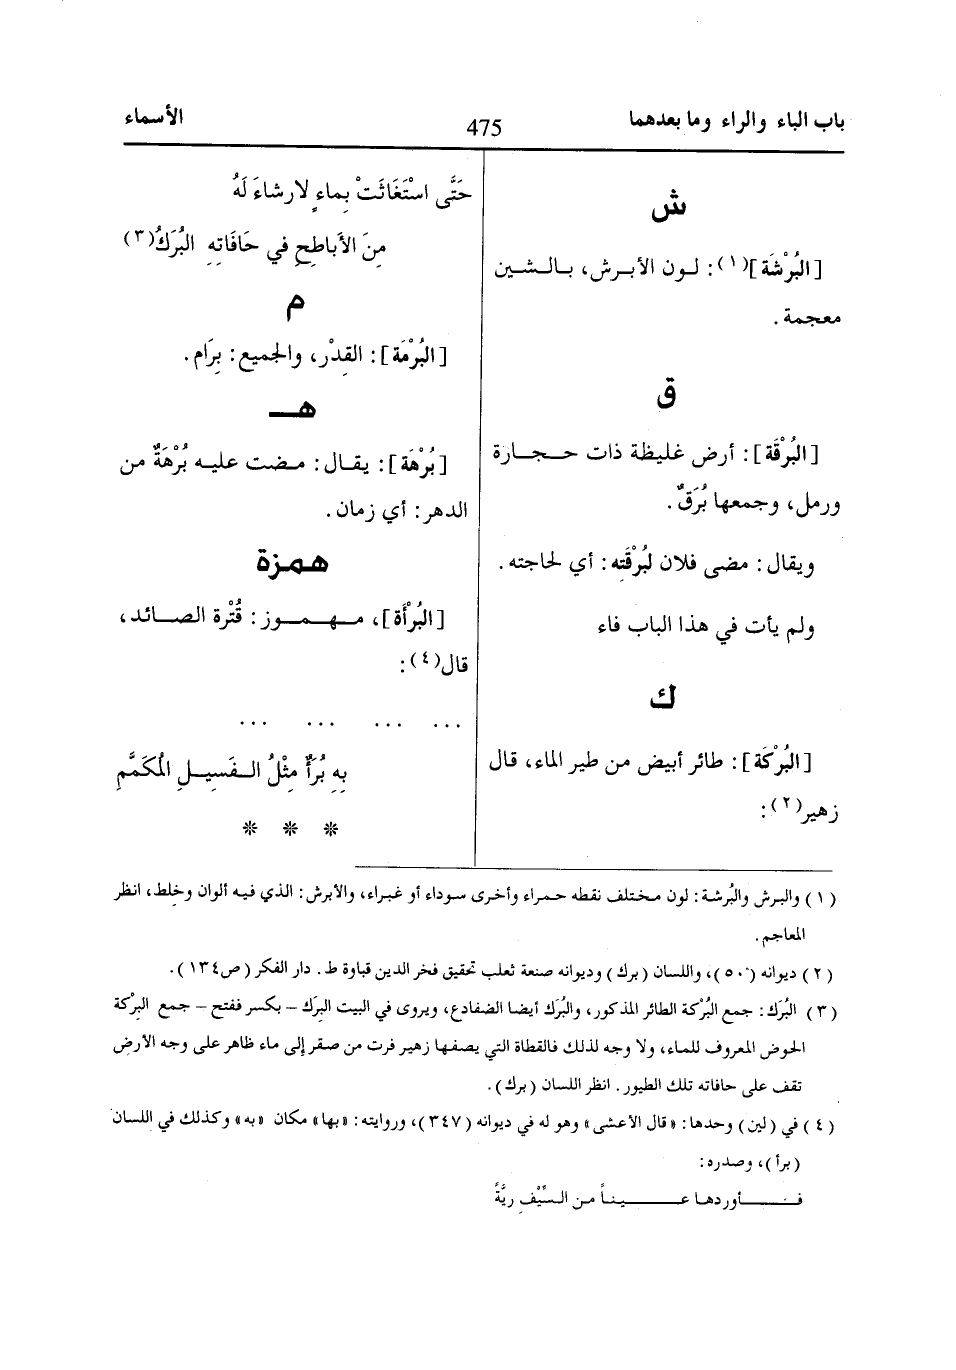 باب الباء والراء وما بعدهما
475
الأسماء
ش
[البُرْشَة](١): لون الأبرش، بالشين
معجمة.
ق
[البُرْقَة]: أرض غليظة ذات حجارة
ورمل، وجمعها بُرَقٌ.
ويقال: مضى فلان لبُرْقَتِه: أي لحاجته.
ولم يأت في هذا الباب فاء
ك
[البُرْكَة]: طائر أبيض من طير الماء، قال
زهير(٢):
حَتَّى اسْتَغَاثَتْ بِماءٍ لا رشاءَ لَهُ
مِنَ الأَباطِحِ في حَافَاتِهِ البُرَكُ(٣)
م
[البُرْمَة]: القِدْر، والجميع: بِرَام.
هـ
[بُرْهَة]: يقال: مضت عليه بُرْهَةٌ من
الدهر: أي زمان.
همزة
[البُرْأَة]، مهموز: قُتْرة الصائد،
قال(٤):
... ... ... ...
بِهِ بُرَأٌ مِثْلُ الفَسِيلِ المُكَمَّمِ
* * *
(١) والبرش والبُرشة: لون مختلف نقطه حمراء وأخرى سوداء أو غبراء، والأبرش: الذي فيه ألوان وخلط، انظر
المعاجم.
(٢) ديوانه (٥٠)، واللسان (برك) وديوانه صنعة ثعلب تحقيق فخر الدين قباوة ط. دار الفكر (ص١٣٤).
(٣) البُرَك: جمع البُرْكة الطائر المذكور، والبُرَك أيضا الضفادع، ويروى في البيت البِرَك – بكسر ففتح – جمع البِرْكة
الحوض المعروف للماء، ولا وجه لذلك فالقطاة التي يصفها زهير فرت من صقر إلى ماء ظاهر على وجه الأرض
تقف على حافاته تلك الطيور. انظر اللسان (برك).
(٤) في (لين) وحدها: «قال الأعشى» وهو له في ديوانه (٣٤٧)، وروايته: «بها» مكان «به» وكذلك في اللسان
(برأ)، وصدره:
فأوردها عيناً من السِّيْفِ رِيَّةً